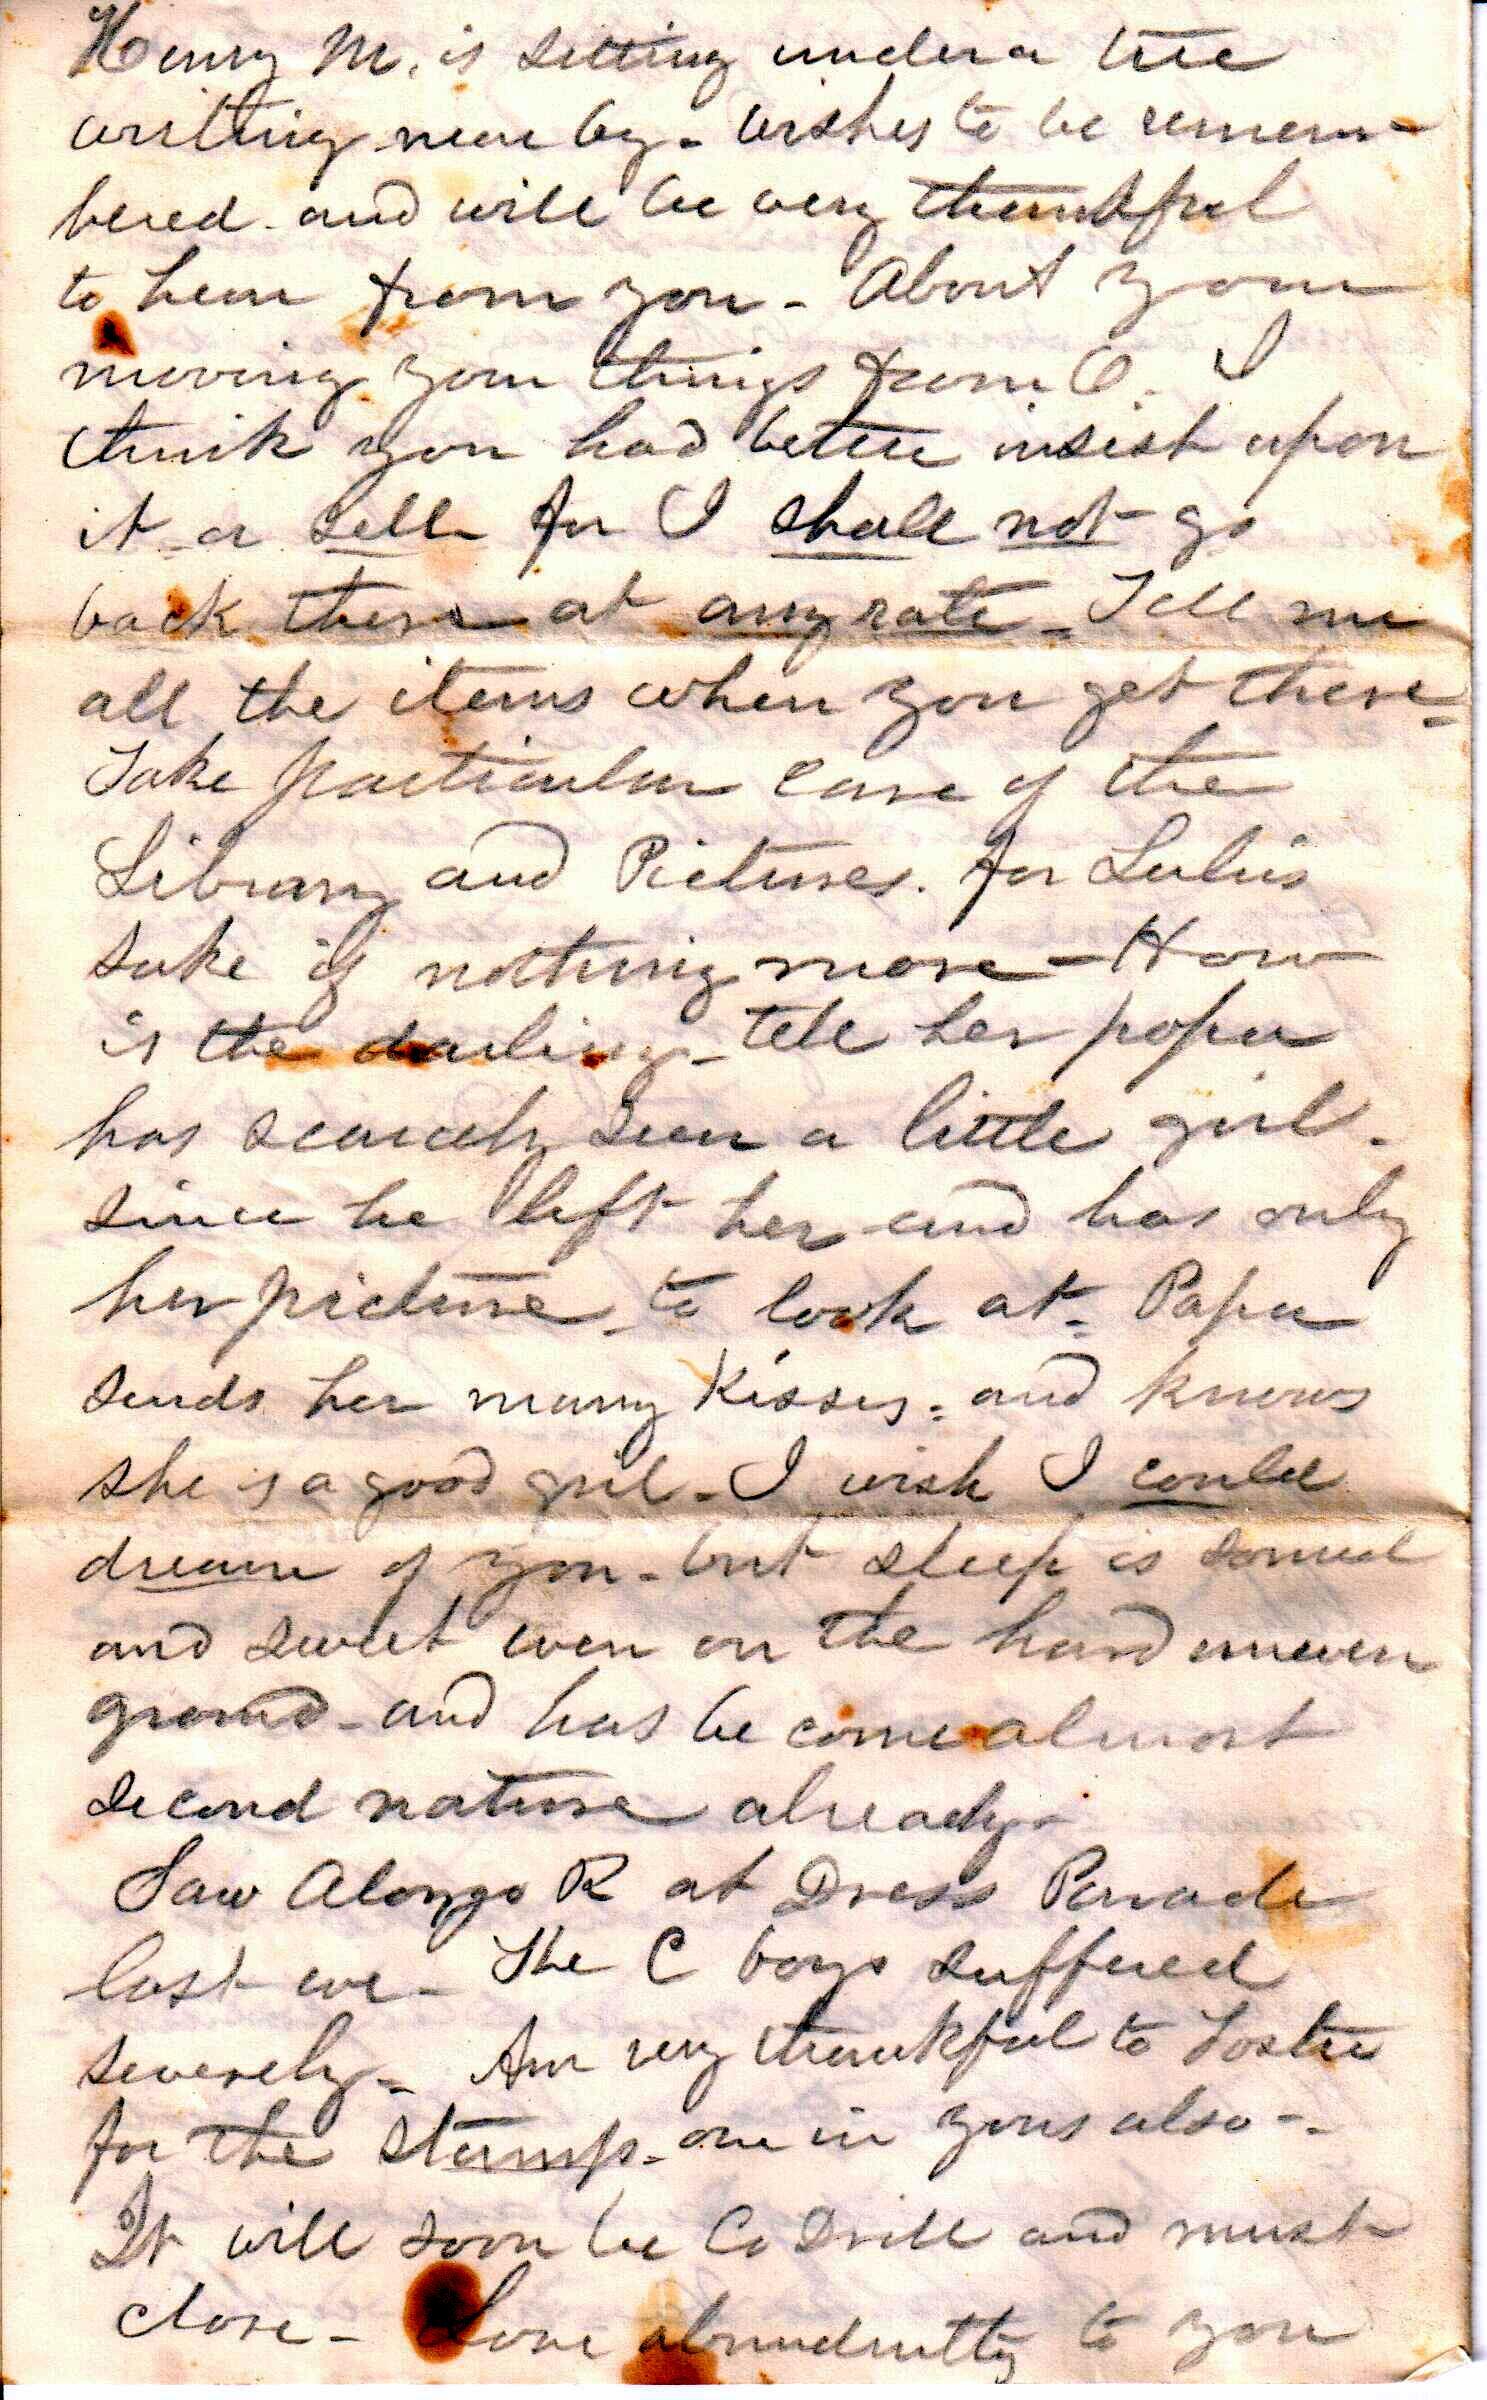 Henry M. is setting under a tree
writing near by - wishes to be remem-
bered - and will be very thankful
to hear from you - About your
moving your things from O. I
think you had better insist upon
it or sell for I shall not go
back there at any rate - Tell me
all the items when you get there -
Take particular care of the
Library and Pictures. for Lulu's
sake if nothing more - How
is the darling - tell her papa
has scarcely seen a little girl -
since he left her and has only
her picture to look at - Papa
sends her many kisses - and knows
she is a good girl - I wish I could
dream of you - but sleep is sound
and sweet even on the hard uneven
ground - and has become almost
second nature already -
Saw Alonzo R at Dress Parade
last eve - The C boys suffered
severely - Am very thankful to Foster
for the stamp - one in yours also -
It will soon be Co Drill and must
close - Love abundantly to you